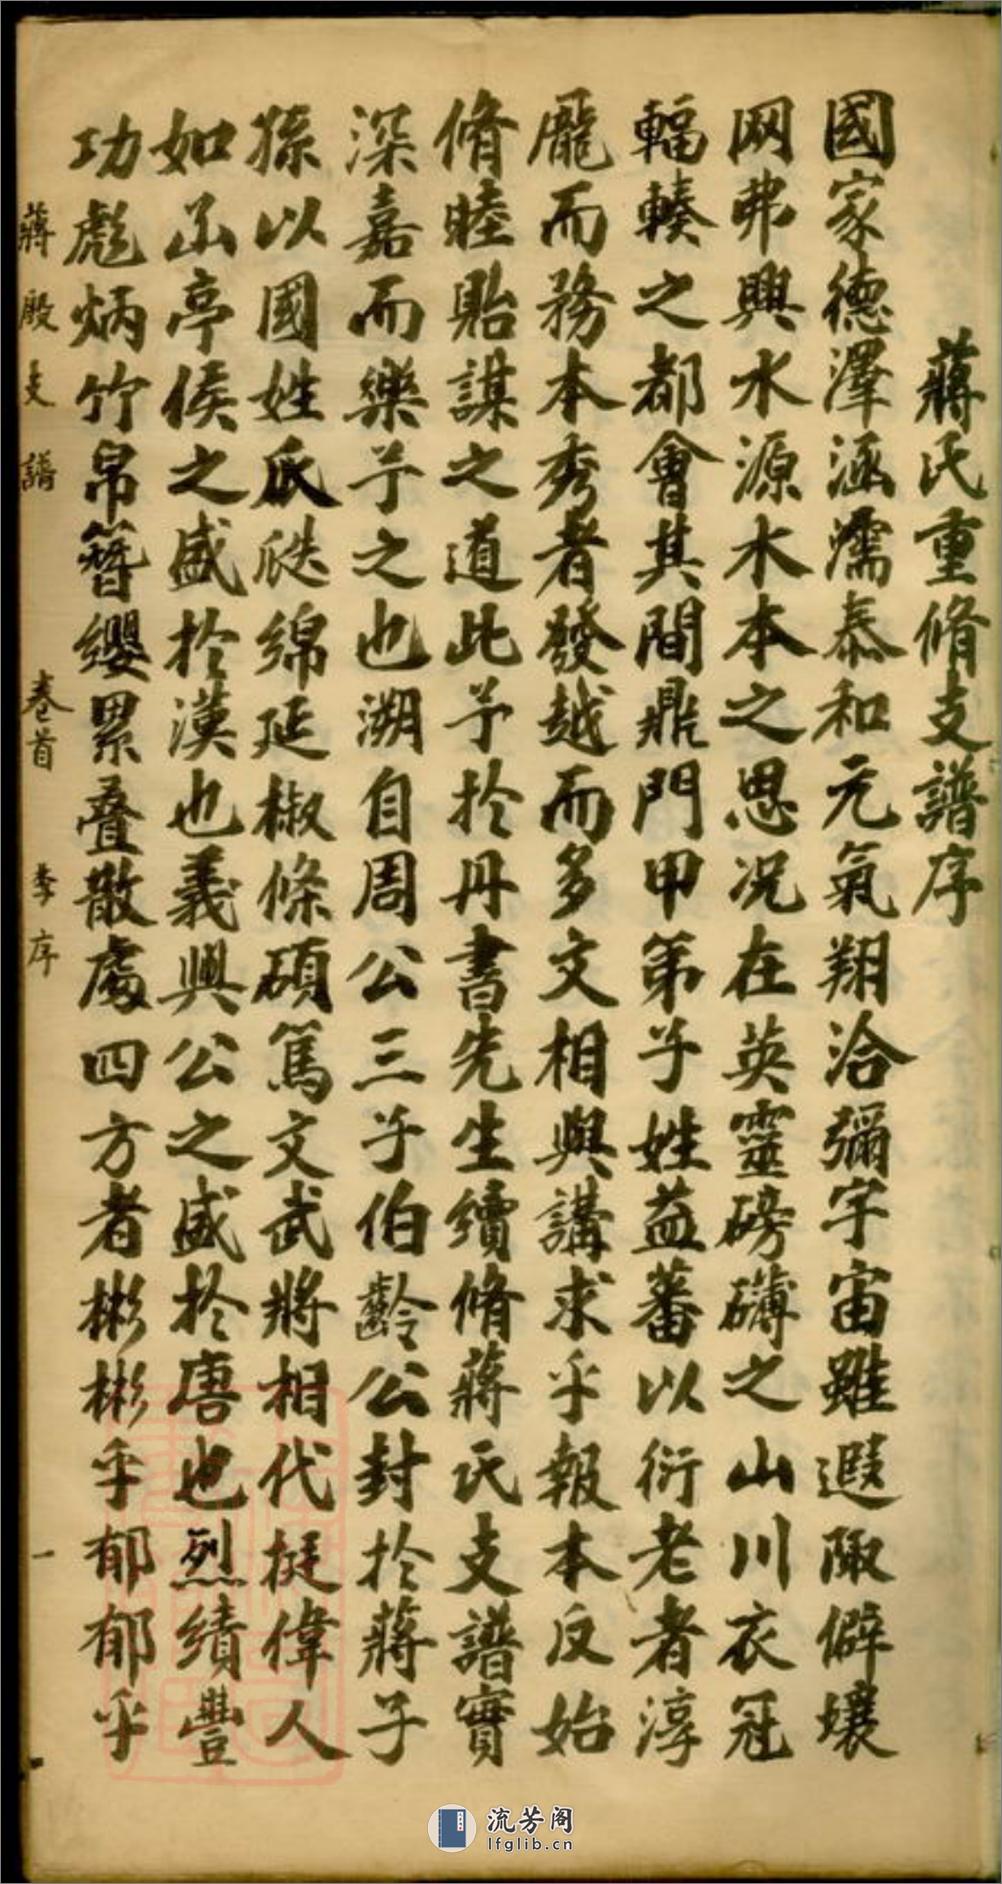 蔣氏重脩支譜序
國家德澤涵濡泰和元氣翔洽彌宇宙雖遐陬僻壤
网弗興水源木本之思况在英靈磅礴之山川衣冠
輻輳之都會其間鼎門甲第子姓益蕃以衍老者淳
龐而務本秀者發越而多文相與講求乎報本反始
脩睦貽謀之道此予於丹書先生續脩蔣氏支譜實
深嘉而樂予之也溯自周公三子伯齡公封於蔣子
孫以國姓瓜瓞綿延椒條碩篤文武將相代挺偉人
如函亭侯之盛於漢也義興公之盛於唐也烈績豐
功彪炳竹帛簪纓累叠散處四方者彬彬乎郁郁乎
蔣殿支譜 卷首 李序 一
流芳阁
lfglib.cn